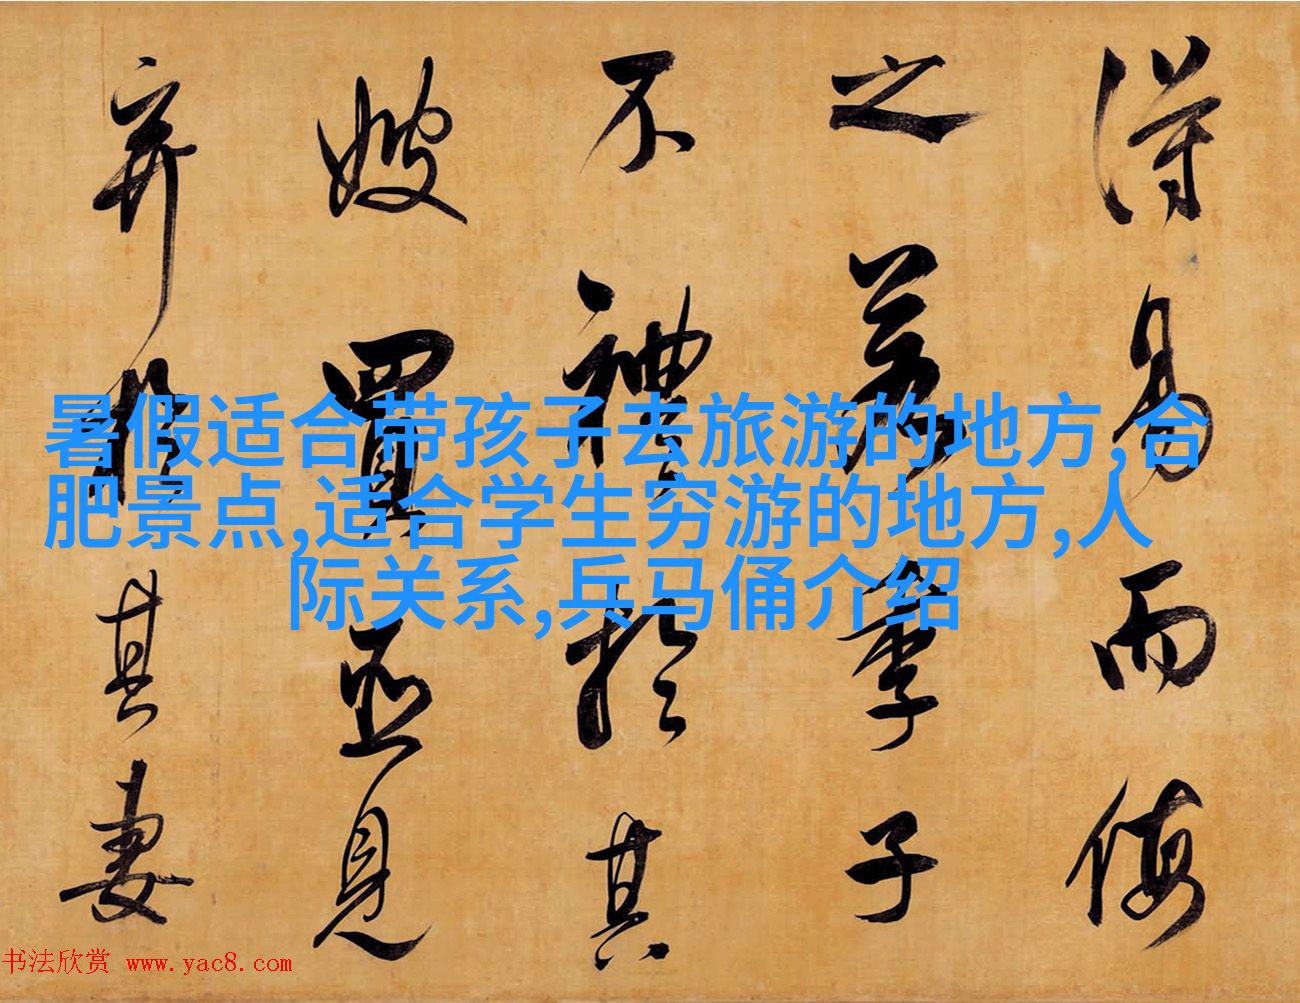 得易而侮
之若季子
不禮於其
嫂買臣見
弃於其妻
暑假适合带孩子去旅游的地方,合
肥景点,适合学生穷游的地方,人
际关系,兵马俑介绍
书法欣赏 www.yac8.com